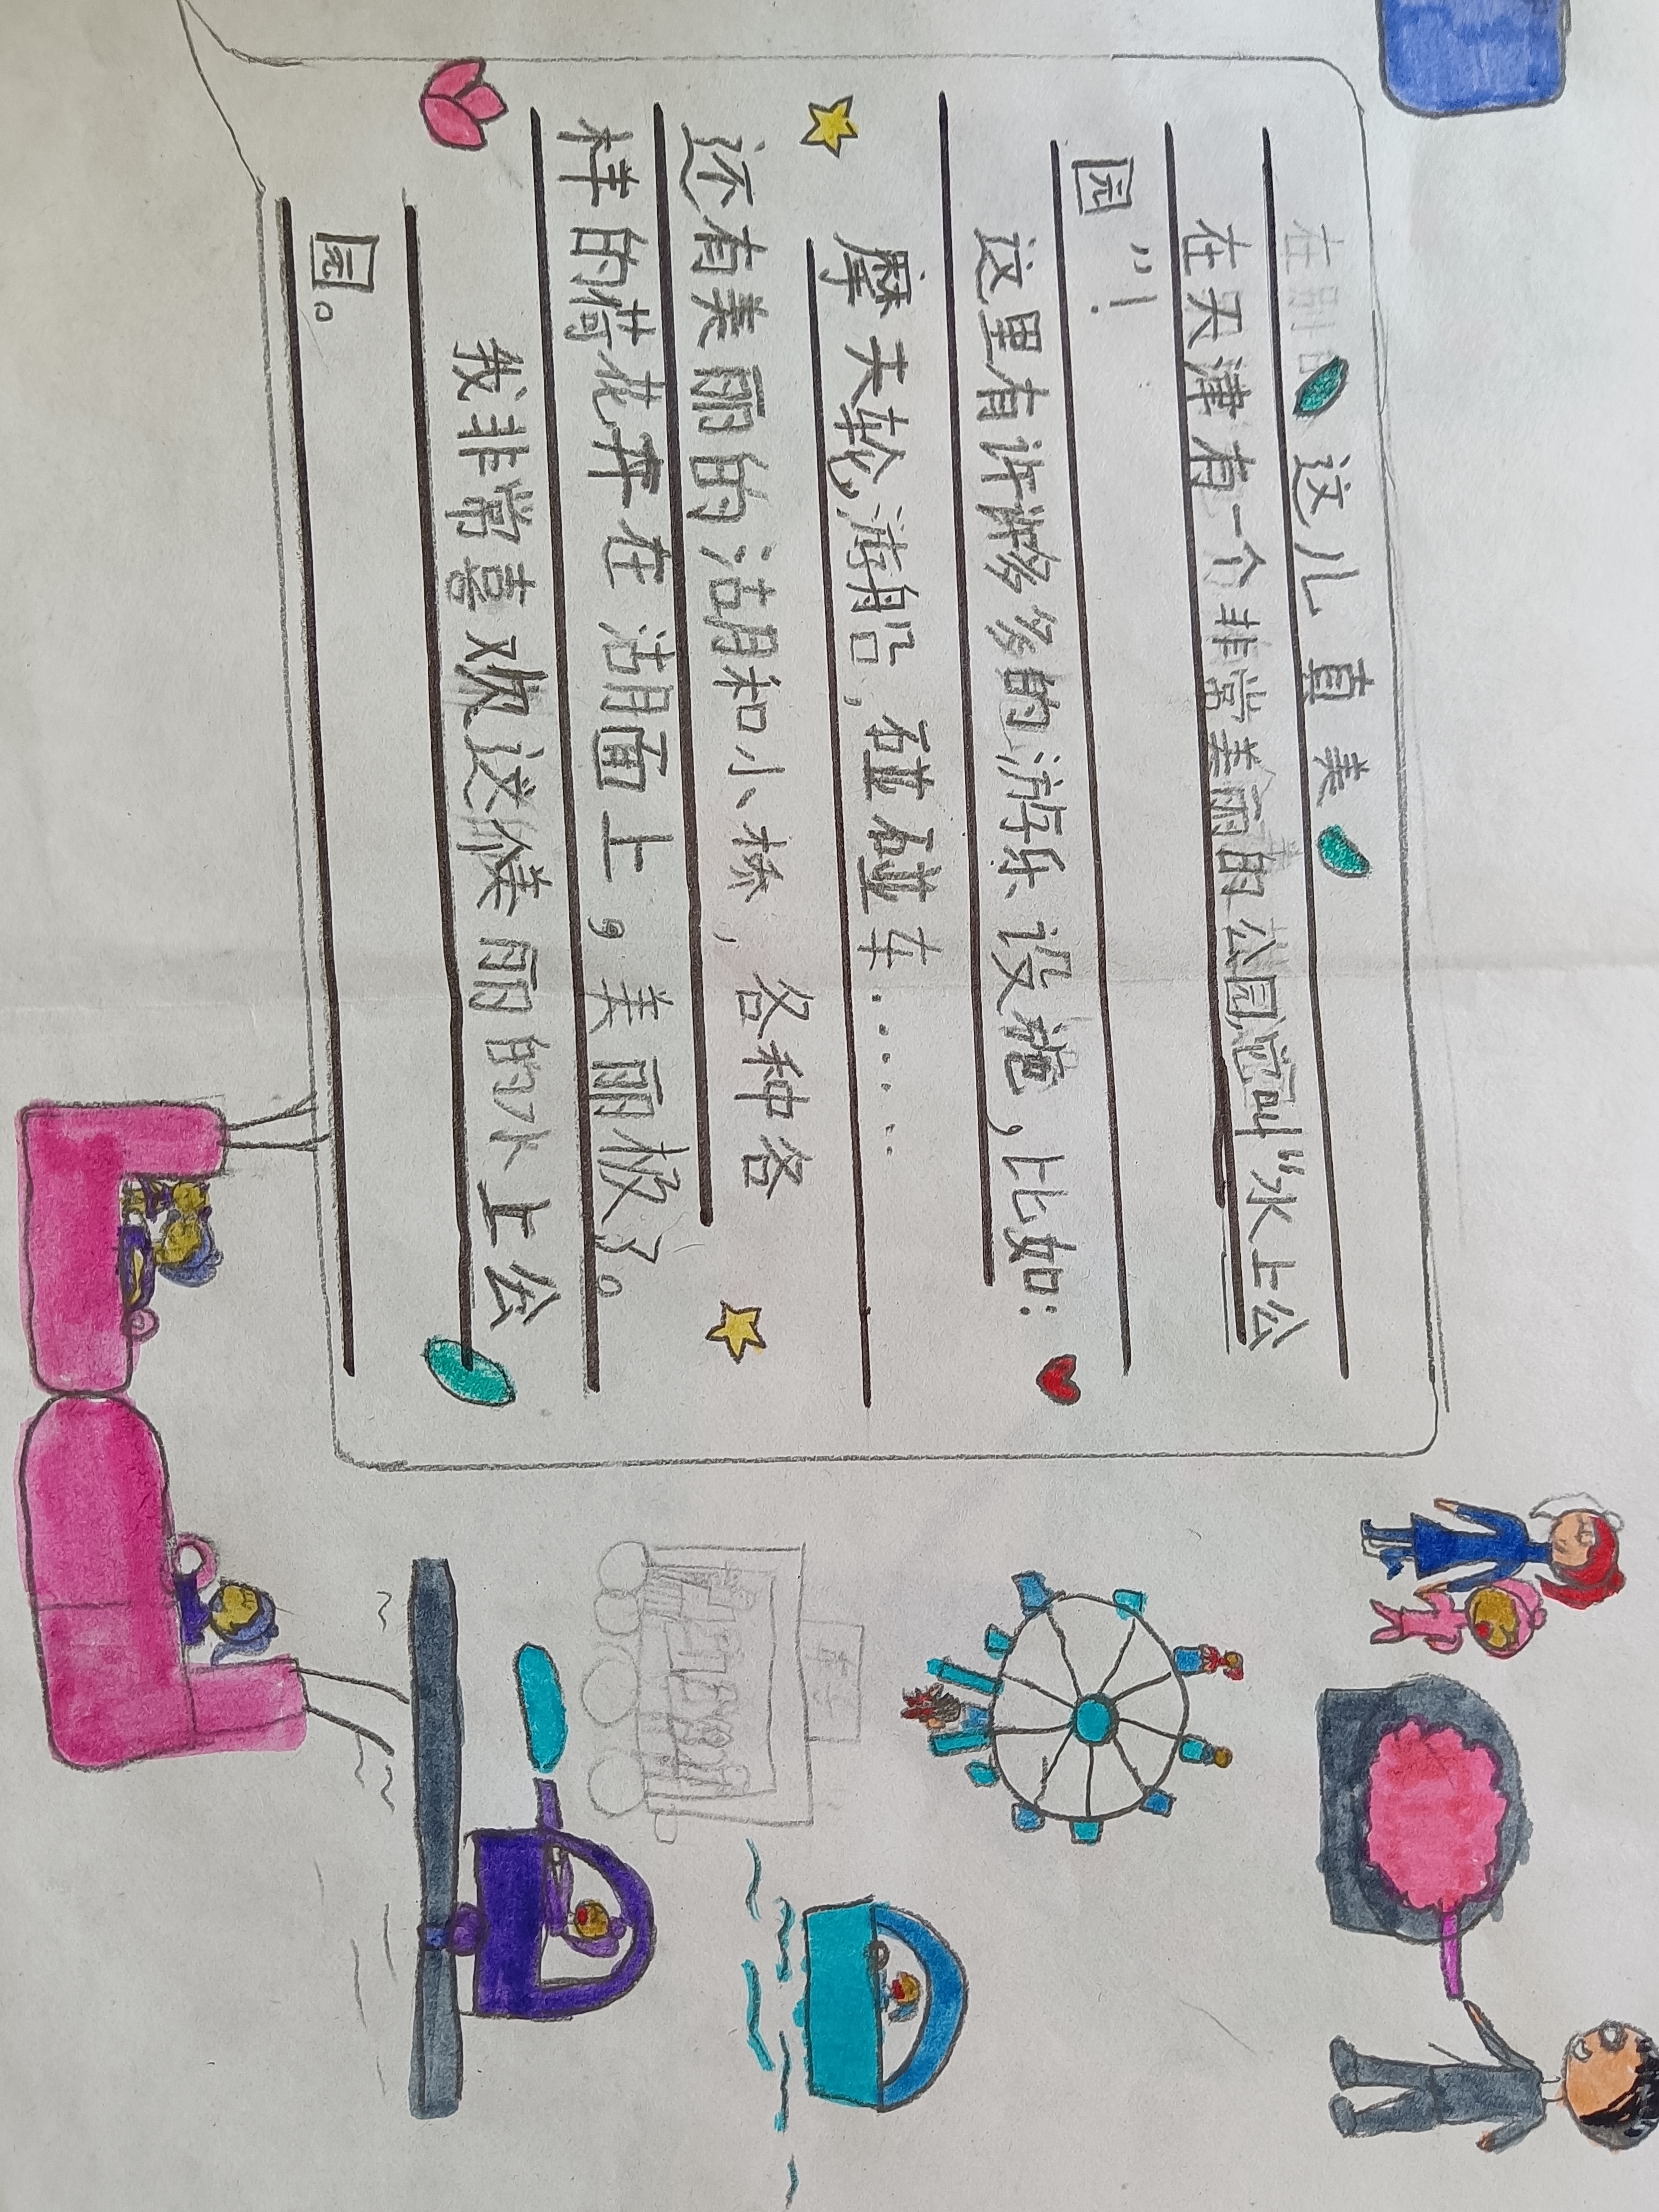 这儿真美
在天津有一个非常美丽的公园它叫“水上公
园”！
这里有许许多多的游乐设施，比如：
摩天轮，游船，碰碰车……
还有美丽的湖和小桥，各种各
样的荷花弄在湖面上，美丽极了。
我非常喜欢这美丽的水上公
园。